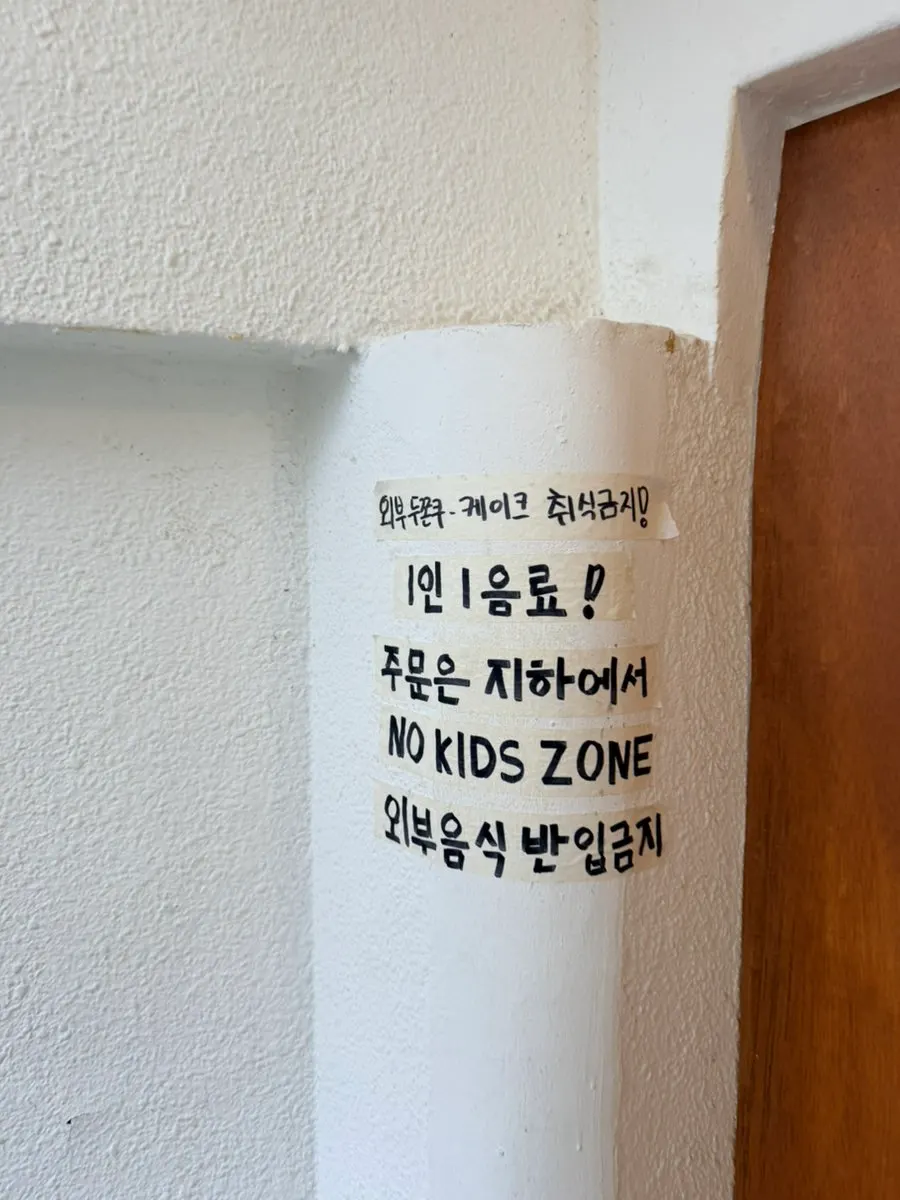 외부 두쫀쿠 - 케이크 취식금지!
1인 1음료!
주문은 지하에서
NO KIDS ZONE
외부음식 반입금지